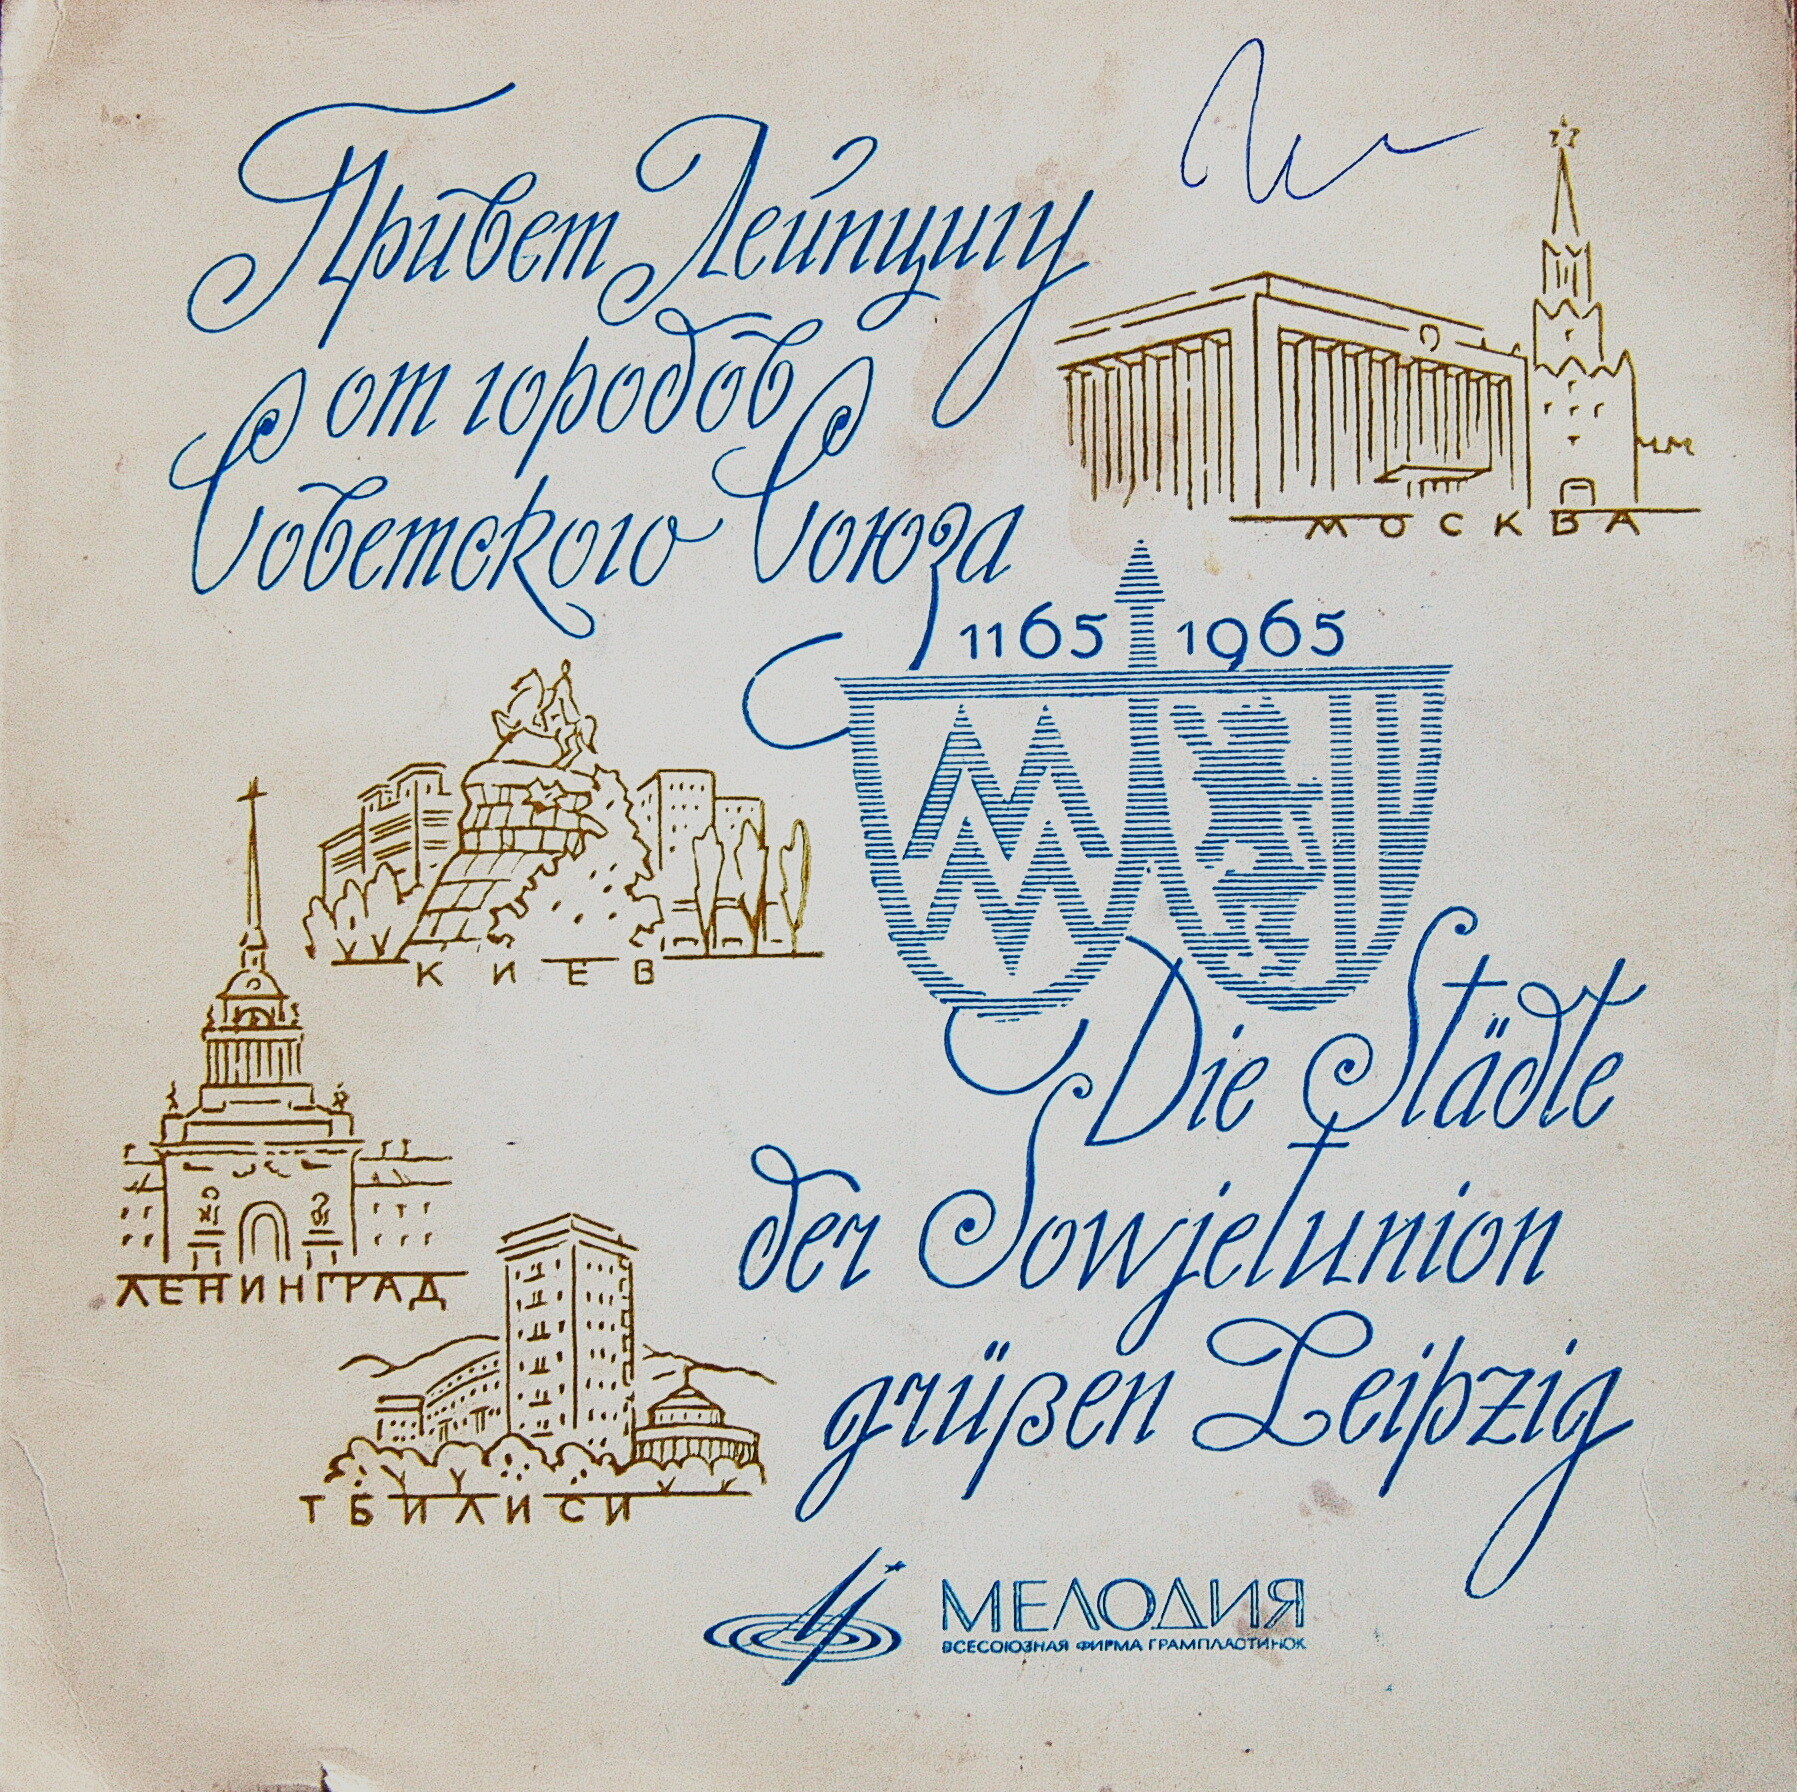 Привет Лейпцигу
от городов
Советского Союза
МОСКВА
1165 1965
КИЕВ
ММ
Die Städte
der Sowjetunion
grüßen Leipzig
ЛЕНИНГРАД
ТБИЛИСИ
МЕЛОДИЯ
ВСЕСОЮЗНАЯ ФИРМА ГРАМПЛАСТИНОК